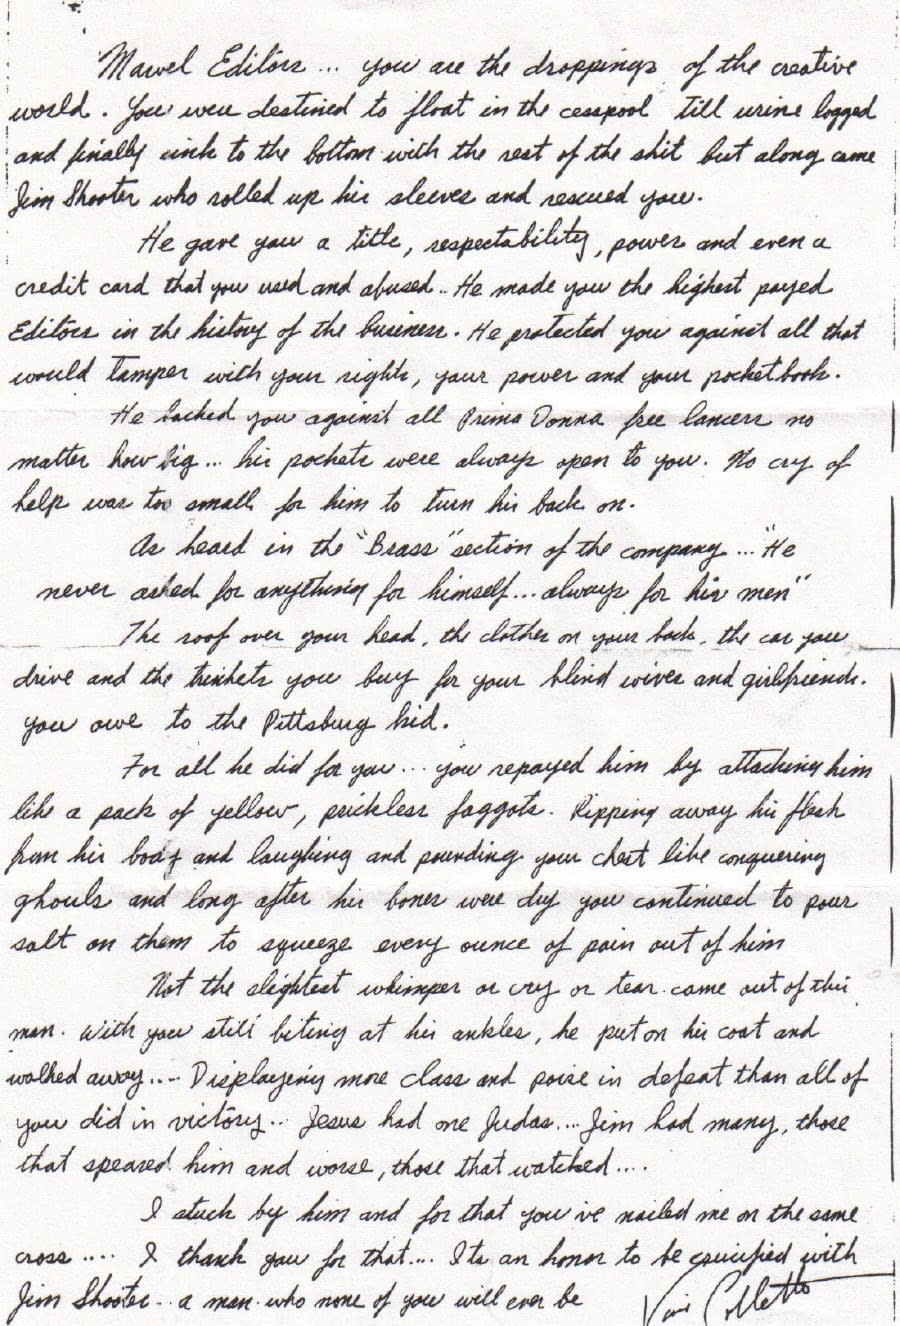 Marvel Editors ... you are the droppings of the creative
world. You were destined to float in the cesspool till urine logged
and finally sink to the bottom with the rest of the shit but along came
Jim Shooter who rolled up his sleeves and rescued you.
He gave you a title, respectability, power and even a
credit card that you used and abused.. He made you the highest payed
Editors in the history of the business. He protected you against all that
would tamper with your rights, your power and your pocketbook.
He backed you against all Prima Donna free lancers no
matter how big... his pockets were always open to you. No cry of
help was too small for him to turn his back on.
As heard in the "Brass" section of the company... "He
never asked for anything for himself... always for his men"
The roof over your head, the clothes on your back, the car you
drive and the trinkets you buy for your blind wives and girlfriends.
you owe to the Pittsburg kid.
For all he did for you... you repayed him by attacking him
like a pack of yellow, prickless faggots. Ripping away his flesh
from his body and laughing and pounding your chest like conquering
ghouls and long after his bones were dry you continued to pour
salt on them to squeeze every ounce of pain out of him
Not the slightest whimper or cry or tear came out of this
man. With you still biting at his ankles, he put on his coat and
walked away.... Displaying more class and poise in defeat than all of
you did in victory... Jesus had one Judas.... Jim had many, those
that speared him and worse, those that watched....
I stuck by him and for that you've nailed me on the same
cross..... I thank you for that.... Its an honor to be crucified with
Jim Shooter.. a man who none of you will ever be
Vini Colletta